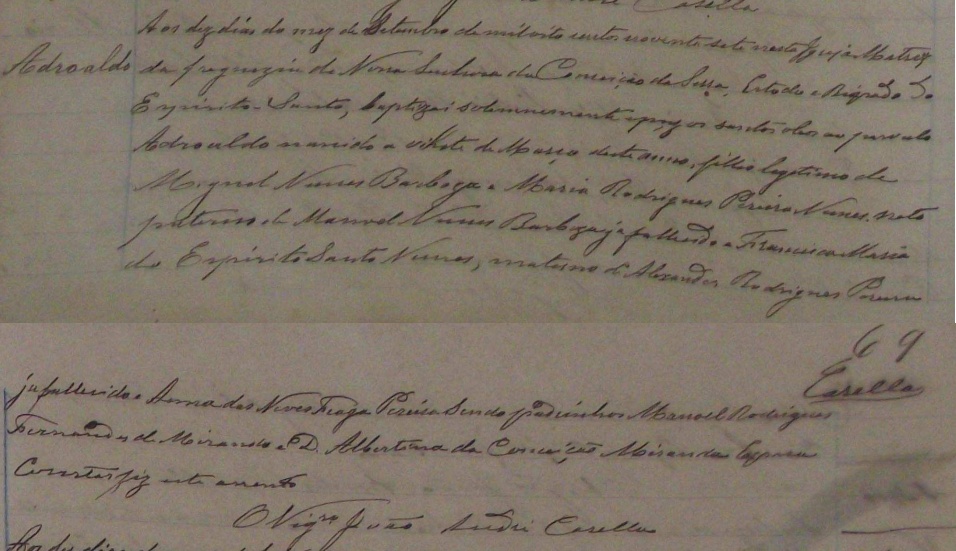 Casella
Adroaldo
Aos dez dias do mez de Setembro de mil oito centos noventa sete nesta Igreja Matriz
da freguezia de Nossa Senhora da Conceição da Serra, Estado e Bispado do
Espirito-Santo, baptizei solemnemente e puz os santos oleos ao parvulo
Adroaldo nascido a de Março deste anno, filho legitimo de
Miguel Nunes Barboza e Maria Rodrigues Pereira Nunes, neto
paterno de Manoel Nunes Barboza já fallecido e Francisca Maria
do Espirito Santo Nunes, materno de Alexandre Rodrigues Pereira
69
Casella
já fallecido e Anna das Neves Fraga Pereira Sendo padrinhos Manoel Rodrigues
Fernandes de Miranda e D. Albertina da Conceição Miranda E para
Constar fiz este assento
O Vigro João André Casella
Aos dez dias